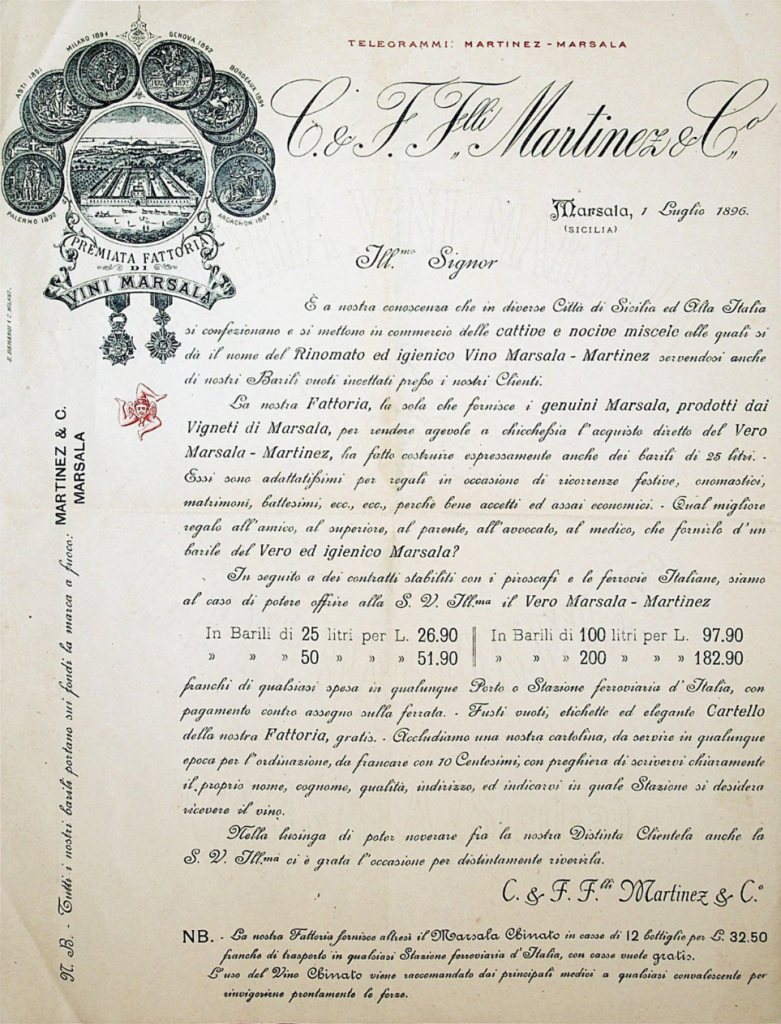 TELEGRAMMI: MARTINEZ - MARSALA
ASTI 1891
MILANO 1894
GENOVA 1892
BORDEAUX 1894
PALERMO 1892
ARCACHON 1894
PREMIATA FATTORIA
DI
VINI MARSALA
C. & F. F.lli Martinez & C.o
Marsala, 1 Luglio 1896.
(SICILIA)
Ill.mo Signor
È a nostra conoscenza che in diverse Città di Sicilia ed Alta Italia
si confezionano e si mettono in commercio delle cattive e nocive miscele alle quali si
dà il nome del Rinomato ed igienico Vino Marsala - Martinez servendosi anche
di nostri Barili vuoti incettati presso i nostri Clienti.
La nostra Fattoria, la sola che fornisce i genuini Marsala, prodotti dai
Vigneti di Marsala, per rendere agevole a chicchessia l'acquisto diretto del Vero
Marsala - Martinez, ha fatto costruire espressamente anche dei barili di 25 litri. -
Essi sono adattatissimi per regali in occasione di ricorrenze festive, onomastici,
matrimoni, battesimi, ecc., ecc., perchè bene accetti ed assai economici. - Qual migliore
regalo all'amico, al superiore, al parente, all'avvocato, al medico, che fornirlo d'un
barile del Vero ed igienico Marsala?
In seguito a dei contratti stabiliti con i piroscafi e le ferrovie Italiane, siamo
al caso di potere offrire alla S. V. Ill.ma il Vero Marsala - Martinez
In Barili di 25 litri per L. 26.90 In Barili di 100 litri per L. 97.90
» » » 50 » » » 51.90 » » » 200 » » » 182.90
franchi di qualsiasi spesa in qualunque Porto o Stazione ferroviaria d'Italia, con
pagamento contro assegno sulla ferrata. - Fusti vuoti, etichette ed elegante Cartello
della nostra Fattoria, gratis. - Accludiamo una nostra cartolina, da servire in qualunque
epoca per l'ordinazione, da francare con 10 Centesimi, con preghiera di scrivervi chiaramente
il proprio nome, cognome, qualità, indirizzo, ed indicarvi in quale Stazione si desidera
ricevere il vino.
Nella lusinga di poter noverare fra la nostra Distinta Clientela anche la
S. V. Ill.ma ci è grata l'occasione per distintamente riverirla.
C. & F. F.lli Martinez & C.o
NB. - La nostra Fattoria fornisce altresì il Marsala Chinato in casse di 12 bottiglie per L. 32.50
franche di trasporto in qualsiasi Stazione ferroviaria d'Italia, con casse vuote gratis.
L'uso del Vino Chinato viene raccomandato dai principali medici a qualsiasi convalescente per
rinvigorirne prontamente le forze.
N. B. - Tutti i nostri barili portano sui fondi la marca a fuoco: MARTINEZ & C.
MARSALA